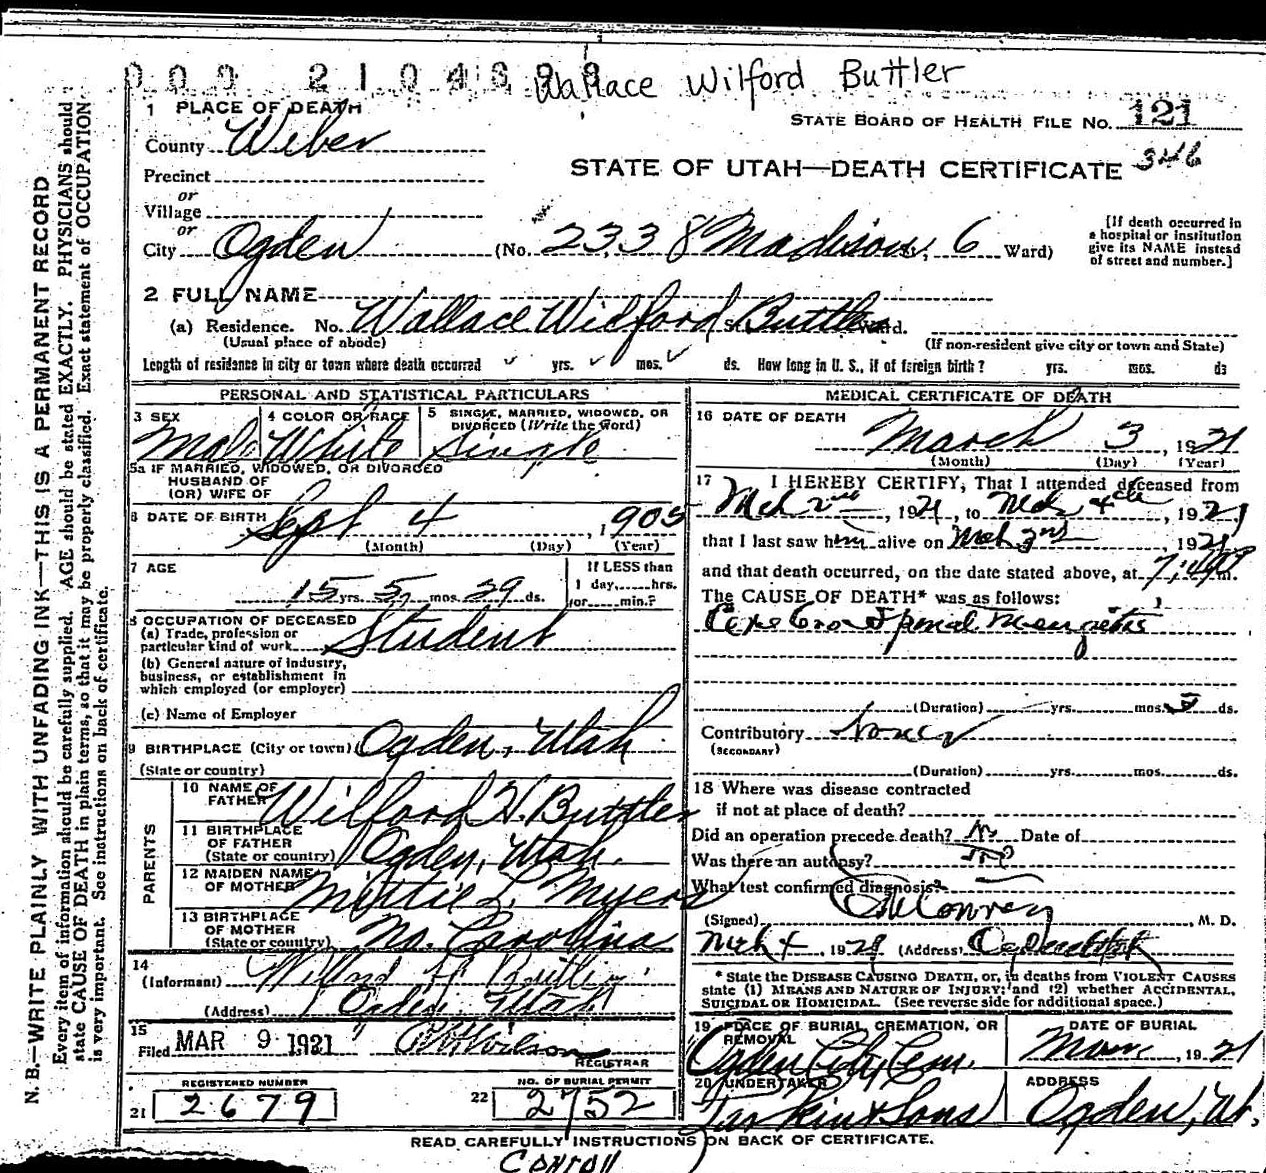 Wallace Wilford Buttler
1 PLACE OF DEATH
STATE BOARD OF HEALTH FILE NO. 121
County Weber
346
STATE OF UTAH—DEATH CERTIFICATE
Precinct
or
Village
or
City Ogden (No. 2338 Madison, 6 Ward)
[If death occurred in
a hospital or institution
give its NAME instead
of street and number.]
2 FULL NAME
Wallace Wilford Buttler
(a) Residence. No. St. Ward.
(Usual place of abode)
(If non-resident give city or town and State)
Length of residence in city or town where death occurred yrs. mos. ds. How long in U. S., if of foreign birth? yrs. mos. ds
PERSONAL AND STATISTICAL PARTICULARS
3 SEX
Male
4 COLOR OR RACE
White
5 SINGLE, MARRIED, WIDOWED, OR
DIVORCED (Write the word)
Single
5a IF MARRIED, WIDOWED, OR DIVORCED
HUSBAND OF
(OR) WIFE OF
6 DATE OF BIRTH Sept 4, 1905
(Month) (Day) (Year)
7 AGE
15 yrs. 5 mos. 29 ds.
If LESS than
1 day,......hrs.
or......min.?
8 OCCUPATION OF DECEASED
(a) Trade, profession or
particular kind of work Student
(b) General nature of industry,
business, or establishment in
which employed (or employer)
(c) Name of Employer
9 BIRTHPLACE (City or town) Ogden, Utah
(State or country)
PARENTS
10 NAME OF
FATHER Wilford H. Buttler
11 BIRTHPLACE
OF FATHER
(State or country) Ogden, Utah.
12 MAIDEN NAME
OF MOTHER Mittie L. Myers
13 BIRTHPLACE
OF MOTHER
(State or country) No. Carolina
14
(Informant) Wilford H. Buttler
(Address) Ogden Utah
15
Filed MAR 9 1921 Wilson
REGISTRAR
REGISTERED NUMBER
21 2679
NO. OF BURIAL PERMIT
22 2752
MEDICAL CERTIFICATE OF DEATH
16 DATE OF DEATH
March 3, 1921
(Month) (Day) (Year)
17 I HEREBY CERTIFY, That I attended deceased from
Mch 2nd, 1921, to Mch 4th, 1921
that I last saw him alive on Mch 3rd 1921
and that death occurred, on the date stated above, at m.
The CAUSE OF DEATH* was as follows:
Cerebro Spinal Meningitis
(Duration) yrs. mos. 5 ds.
Contributory None
(SECONDARY)
(Duration) yrs. mos. ds.
18 Where was disease contracted
if not at place of death?
Did an operation precede death? No Date of
Was there an autopsy? No
What test confirmed diagnosis?
(Signed) Conroy, M. D.
Mch 4, 1921 (Address) Ogden Utah
* State the DISEASE CAUSING DEATH, or, in deaths from VIOLENT CAUSES
state (1) MEANS AND NATURE OF INJURY; and (2) whether ACCIDENTAL,
SUICIDAL OR HOMICIDAL. (See reverse side for additional space.)
19 PLACE OF BURIAL, CREMATION, OR
REMOVAL
Ogden City Cem.
DATE OF BURIAL
Mar, 1921
20 UNDERTAKER
Larkin & Sons
ADDRESS
Ogden, Ut.
READ CAREFULLY INSTRUCTIONS ON BACK OF CERTIFICATE.
N. B.—WRITE PLAINLY WITH UNFADING INK—THIS IS A PERMANENT RECORD
Every item of information should be carefully supplied. AGE should be stated EXACTLY. PHYSICIANS should
state CAUSE OF DEATH in plain terms, so that it may be properly classified. Exact statement of OCCUPATION
is very important. See instructions on back of certificate.